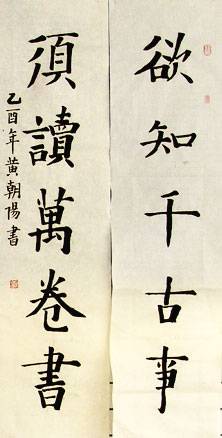 欲知千古事
須讀萬卷書
乙酉年黄朝陽書